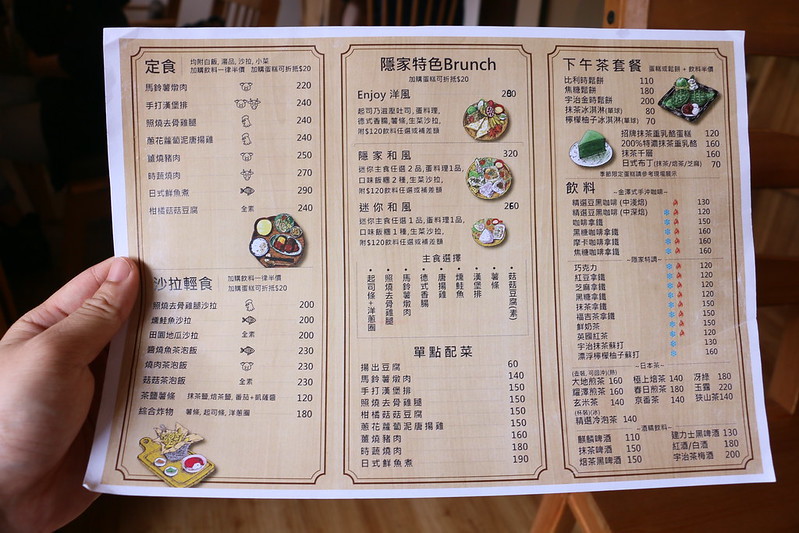 定食
均附白飯, 湯品, 沙拉, 小菜
加購飲料一律半價 加購蛋糕可折抵$20
馬鈴薯燉肉 220
手打漢堡排 240
照燒去骨雞腿 240
蔥花蘿蔔泥唐揚雞 240
薑燒豬肉 250
時蔬燒肉 270
日式鮮魚煮 290
柑橘菇菇豆腐 全素 240
沙拉輕食
加購飲料一律半價
加購蛋糕可折抵$20
照燒去骨雞腿沙拉 200
燻鮭魚沙拉 200
田園地瓜沙拉 全素 200
鹽燒魚茶泡飯 230
燒肉茶泡飯 230
菇菇茶泡飯 全素 230
茶鹽薯條 抹茶鹽, 焙茶鹽, 番茄+凱薩醬 120
綜合炸物 薯條, 起司條, 洋蔥圈 180
隱家特色Brunch
加購蛋糕可折抵$20
Enjoy 洋風
起司乃滋壓吐司, 蛋料理,
德式香腸, 薯條, 生菜沙拉,
附$120飲料任選或補差額
隱家和風 320
迷你主食任選2品, 蛋料理1品,
口味飯糰2種, 生菜沙拉,
附$120飲料任選或補差額
迷你和風
迷你主食任選1品, 蛋料理1品,
口味飯糰1種, 生菜沙拉,
附$120飲料任選或補差額
主食選擇
•起司條+洋蔥圈
•照燒去骨雞腿
•馬鈴薯燉肉
•德式香腸
•唐揚雞
•燻鮭魚
•漢堡排
•薯條
•菇菇豆腐(素)
單點配菜
揚出豆腐 60
馬鈴薯燉肉 140
手打漢堡排 150
照燒去骨雞腿 150
柑橘菇菇豆腐 150
蔥花蘿蔔泥唐揚雞 150
薑燒豬肉 160
時蔬燒肉 180
日式鮮魚煮 190
下午茶套餐 蛋糕或鬆餅+飲料半價
比利時鬆餅 110
焦糖鬆餅 180
宇治金時鬆餅 200
抹茶冰淇淋(單球) 80
檸檬柚子冰淇淋(單球) 70
招牌抹茶重乳酪蛋糕 120
200%特濃抹茶重乳酪 160
抹茶千層 160
日式布丁(抹茶/焙茶/芝麻) 70
季節限定蛋糕請參考現場展示
飲料
~金澤式手沖咖啡~
精選豆黑咖啡(中淺焙) 130
精選豆黑咖啡(中深焙) 120
咖啡拿鐵 150
黑糖咖啡拿鐵 160
摩卡咖啡拿鐵 160
焦糖咖啡拿鐵 160
~隱家特調~
巧克力 120
紅豆拿鐵 120
芝麻拿鐵 120
黑糖拿鐵 120
抹茶拿鐵 150
福吉茶拿鐵 150
鮮奶茶 150
英國紅茶 120
宇治抹茶蘇打 130
漂浮檸檬柚子蘇打 160
~日本茶~
(壺裝, 可回沖)(熱)
大地煎茶 160 極上焙茶 140 冴綠 180
耀澤煎茶 160 春日煎茶 180 玉露 220
玄米茶 140 京番茶 140 狹山茶140
(杯裝)(冰)
精選冷泡茶 140
~酒精飲料~
麒麟啤酒 110 建力士黑啤酒 130
抹茶啤酒 150 紅酒/白酒 180
焙茶黑啤酒 150 宇治茶梅酒 200